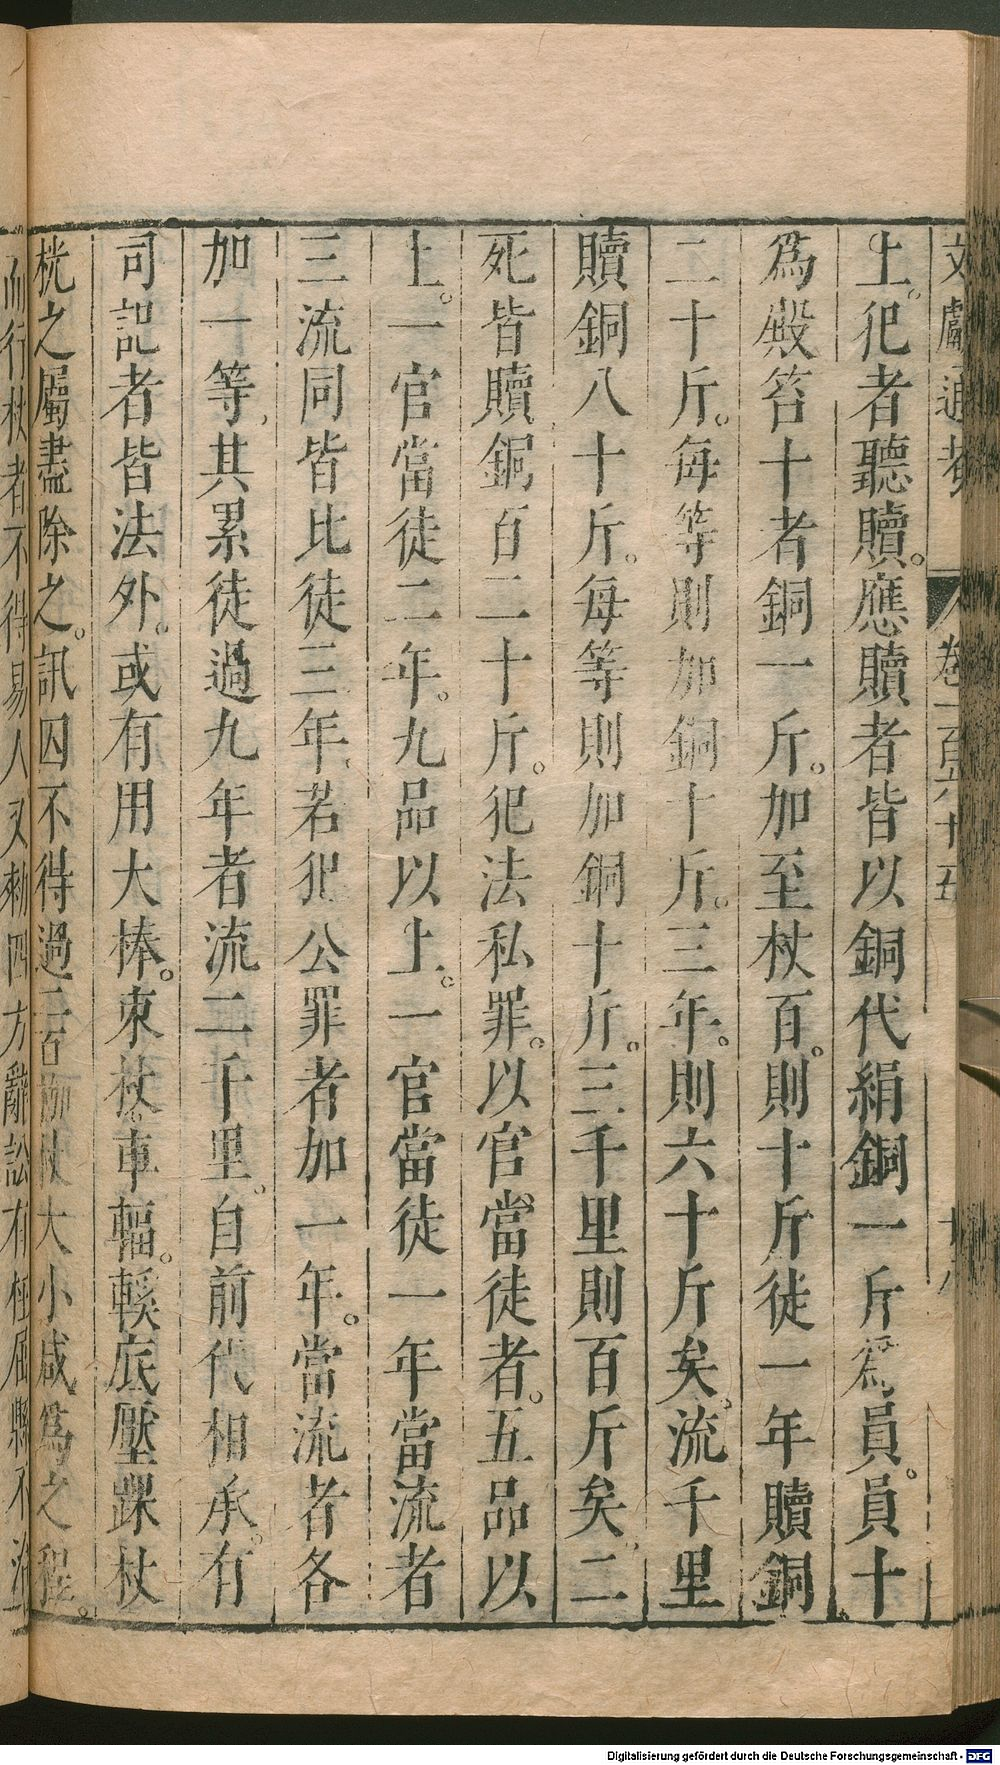 文獻通考 卷一百六十五
上。犯者聽贖。應贖者皆以銅代絹銅一斤爲負。負十
爲殿笞十者銅一斤。加至杖百。則十斤徒一年贖銅
二十斤。每等則加銅十斤。三年。則六十斤矣。流千里
贖銅八十斤。每等則加銅十斤。三千里則百斤矣。二
死皆贖銅百二十斤。犯法私罪。以官當徒者。五品以
上。一官當徒二年。九品以上。一官當徒一年當流者
三流同皆比徒三年。若犯公罪者加一年。當流者各
加一等。其累徒過九年者流二千里。自前代相承。有
司訊者皆法外。或有用大棒。束杖。車輻。鞵底壓踝杖
桄之屬盡除之。訊囚不得過二百枷杖大小咸爲之程。
而行杖者不得易人又勅四方辭訟有枉屈縣不治
Digitalisierung gefördert durch die Deutsche Forschungsgemeinschaft - DFG